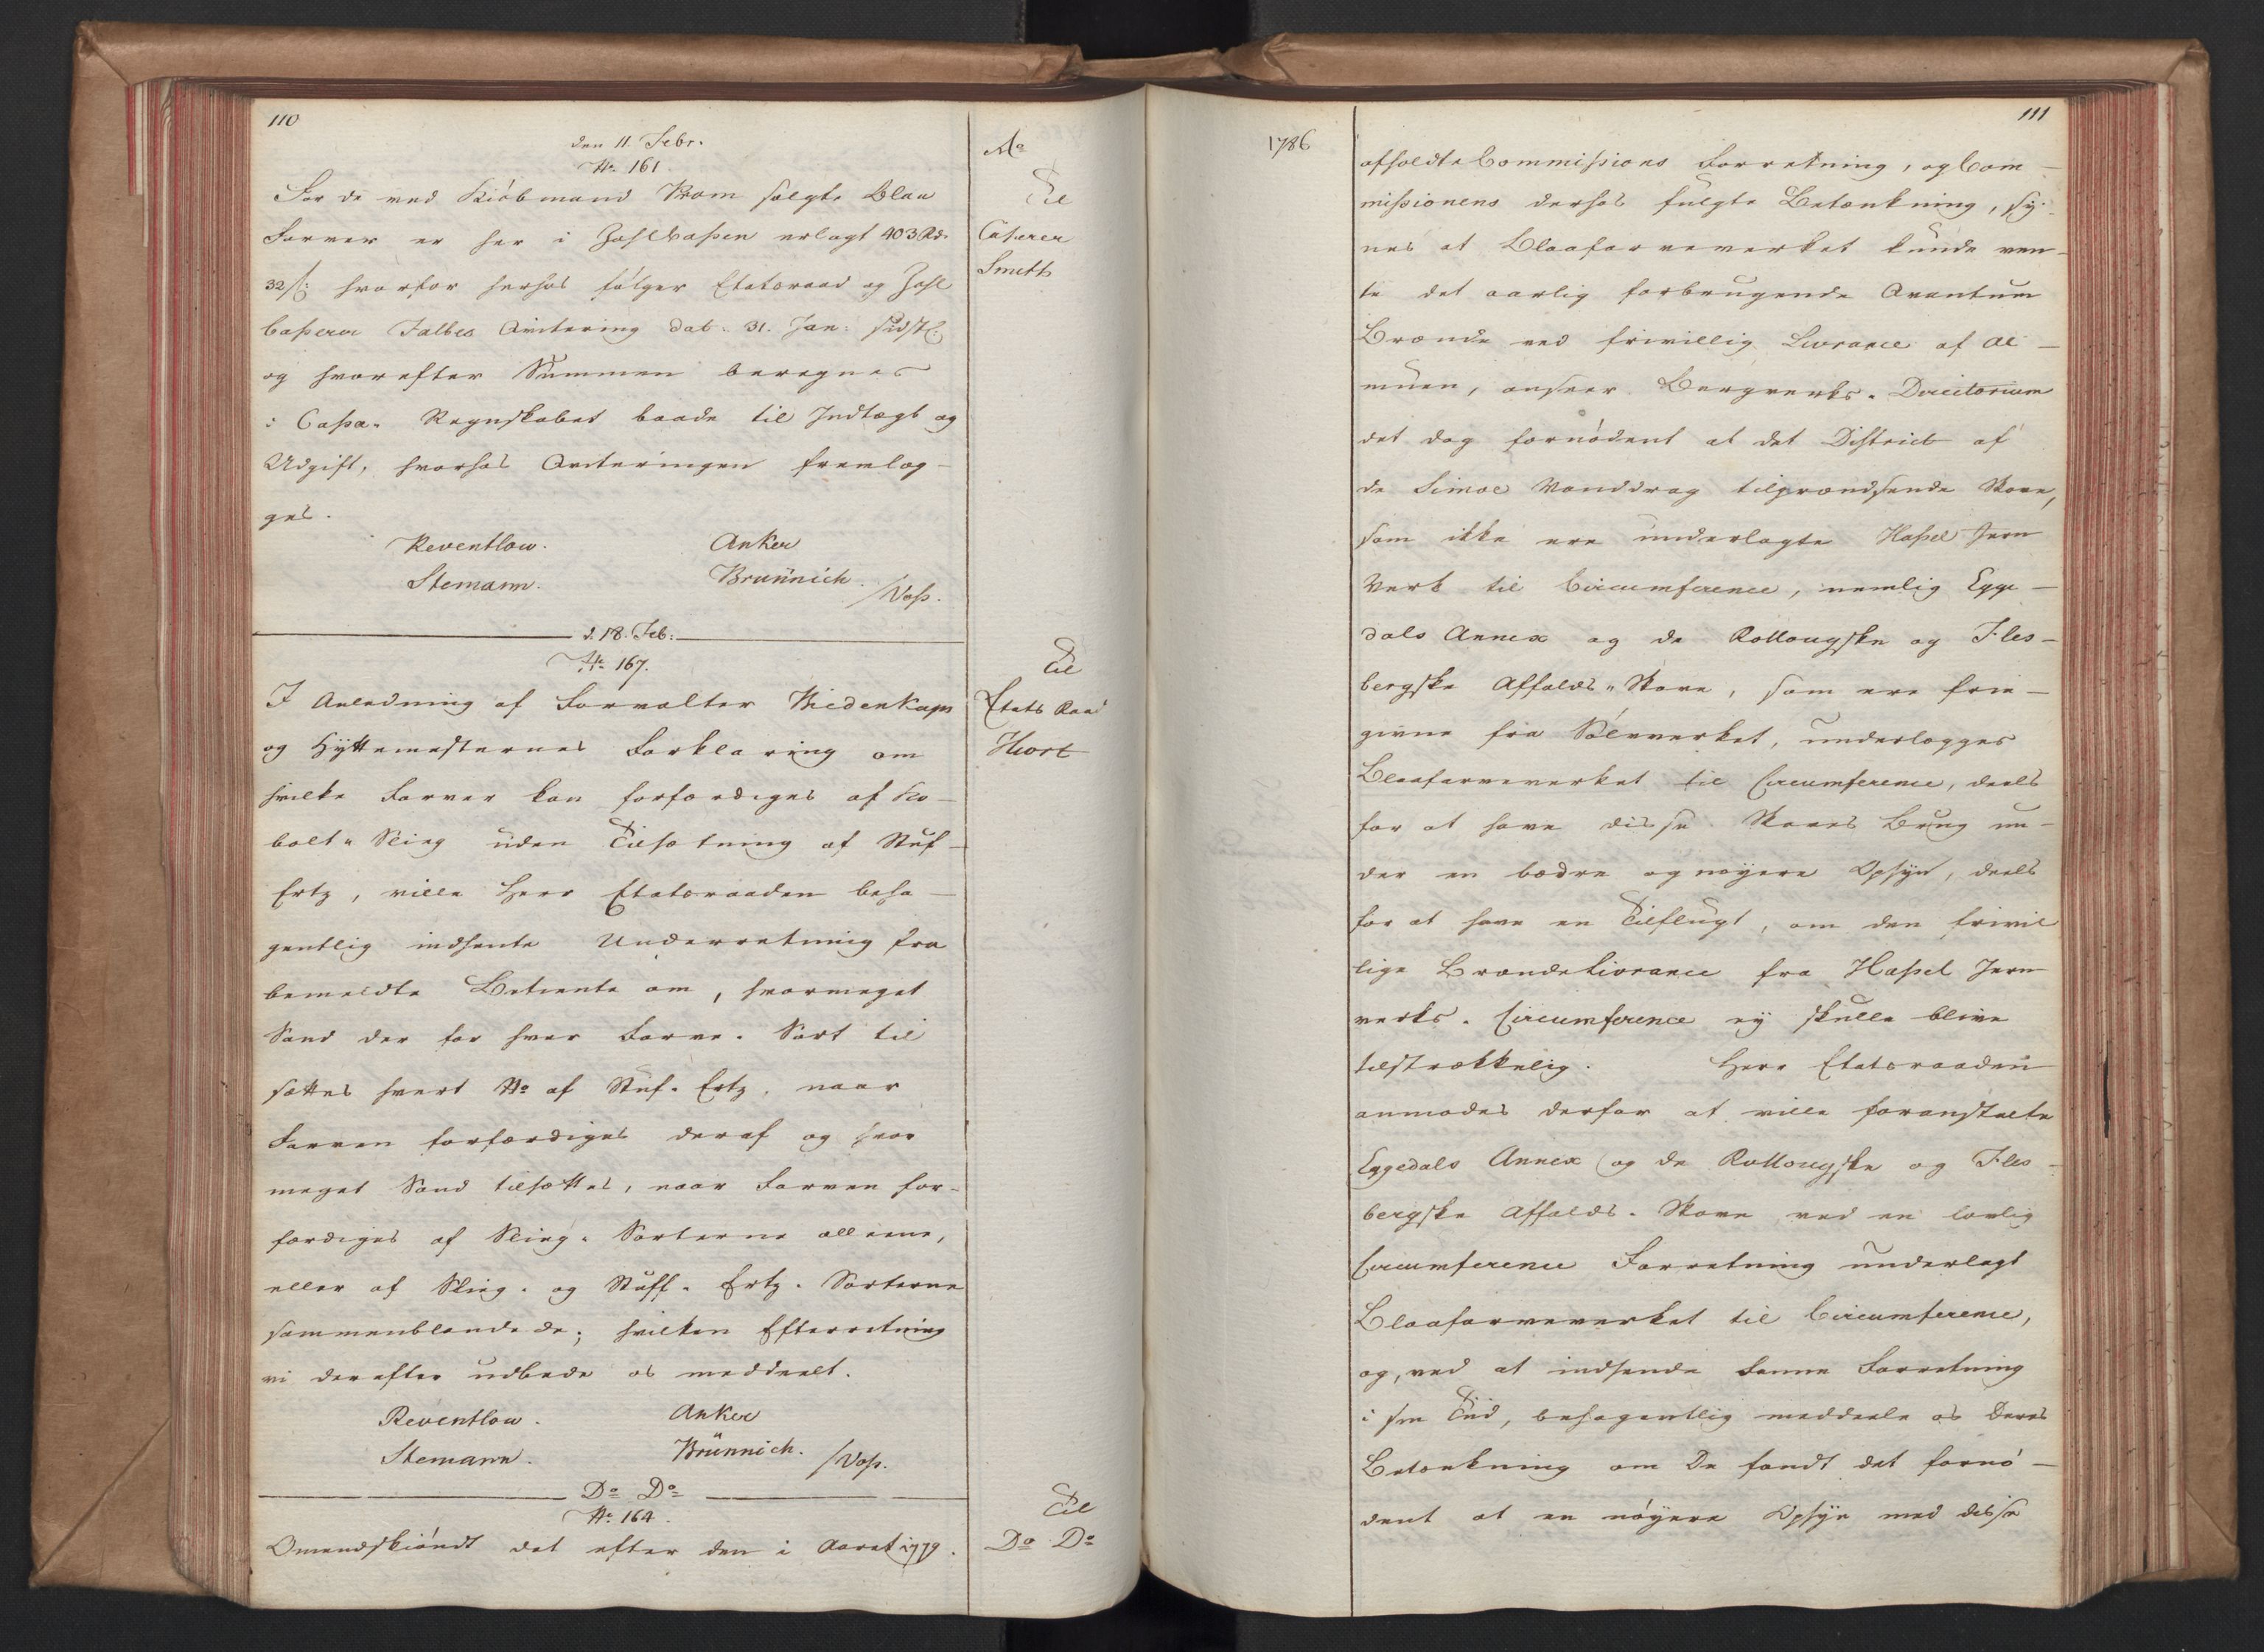 110
den 11. Febr.
No 161.
For de ved Kiöbmand Kram solgte Blaa
Farver er her i Zahlkassen erlagt 403 Rd.
32 s: hvorfor herhos fölger Etatsraad og Zahl
Casserer Falbes Qvitering dat. 31. Jan: sidstl:
og hvorefter Summen beregnes
i Cassa-Regnskabet baade til Indtægt og
Udgift, hvorhos Qviteringen fremlæg-
ges.
Reventlow. Anker
Stemann. Brünnich. /Voss.
d. 18. Feb:
No 167.
I Anledning af Forvalter Wiedenkaps
og Hyttemesternes Forklaring om
hvilke Farver kan forfærdiges af Ko-
bolt-Slieg uden Tilsetning af Stuf-
Ertz, ville Herr Etatsraaden beha-
gentlig indhente Underretning fra
bemeldte Betiente om, hvormeget
Sand der for hver Farve-Sort til
sættes hvert No af Stuf-Ertz, naar
Farven forfærdiges deraf og hvor
meget Sand tilsættes, naar Farven for-
færdiges af Slieg-Sorterne alleene,
eller af Slieg- og Stuff-Ertz-Sorterne
sammenblandede; hvilken Efterretning
vi derefter udbede os meddeelt.
Reventlow. Anker
Stemann. Brünnich. /Voss.
Do Do
No 164.
Omendskiöndt det efter den i Aaret 1779.
Til
Casserer
Smith
Til
Etats Raad
Hiort
Til
Do Do
1786
111
afholdte Commissions Forretning, og Com-
missionens derhos fulgte Betænkning, sy-
nes at Blaafarveverket kunde ven-
te det aarlig forbrugende Qvantum
Brænde ved frivillig Livrance af Al-
muen, anseer Bergverks-Directorium
det dog fornödent at det District af
de Simoe Vanddrag tilgrændsende Skove,
som ikke ere underlagte Hassel Jern
Verk til Circumference, nemlig Egge-
dals Annex og de Rollougske og Fles-
bergske Affalds-Skove, som ere frie-
givne fra Sölvverket, underlægges
Blaafarveverket til Circumference, deels
for at have disse Skoves Brug un-
der en bædre og nöyere Opsyn, deels
for at have en Tilflugt, om den frivil
lige Brændelivrance fra Hassel Jern
verks-Circumference ey skulle blive
tilstrækkelig. Herr Etatsraaden
anmodes derfor at ville foranstalte
Eggedals Annex og de Rollougske og Fles-
bergske Affalds-Skove ved en lovlig
Circumference Forretning underlagt
Blaafarveverket til Circumference,
og, ved at indsende denne Forretning
i sin Tiid, behagentlig meddeele os Deres
Betænkning om De fandt det fornö-
dent at en nöyere Opsyn med disse